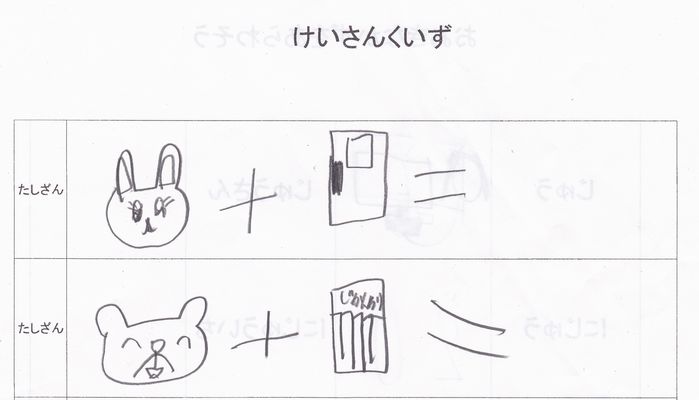 けいさんくいず
たしざん + =
たしざん + じかんわり =